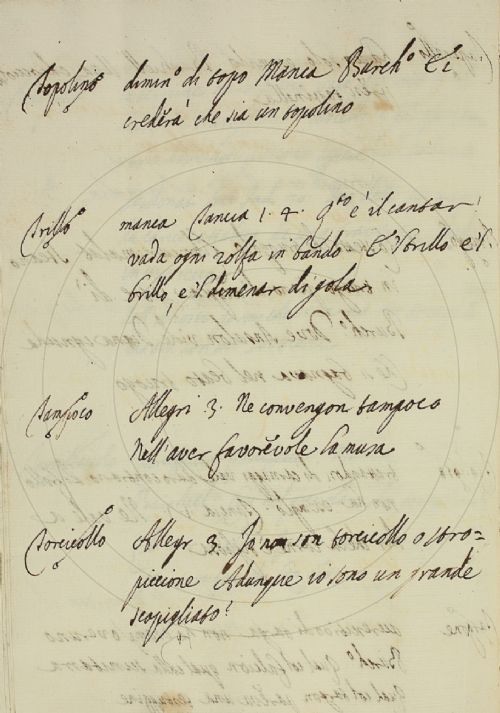 Topolino dimin.º di topo Manca Burch.º E ti
crederà che sia un topolino
Trillo manca Tancia 1. 4. Q.to è il cantar
vada ogni zolfa in bando E 'l trillo e 'l
trillo, e 'l dimenar di gola.
Tampoco Allegri 3. Ne convengon tampoco
Nell'aver favorevole la musa
Torcicollo Allegr 3. Io non son torcicollo o stro-
piccione Adunque io sono un grande
scapigliato?